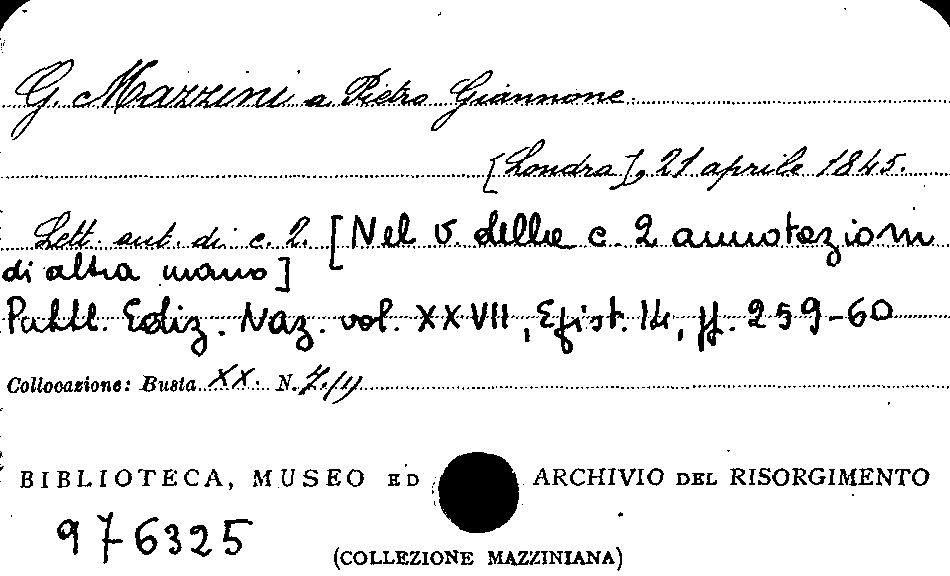 G. Mazzini a Pietro Giannone
[Londra], 21 aprile 1845.
Lett. aut. di c. 2. [Nel v. della c. 2 annotazioni
di altra mano]
Pubbl. Ediz. Naz. vol. XXVII, Epist. 14, pp. 259-60
Collocazione: Busta XX. N. 7/1)
BIBLIOTECA, MUSEO ED ARCHIVIO DEL RISORGIMENTO
976325
(COLLEZIONE MAZZINIANA)